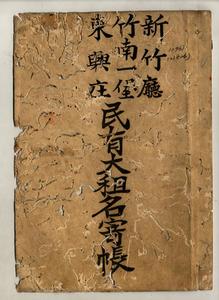 新竹廳
竹南一堡
東興庄
民有大租名寄帳